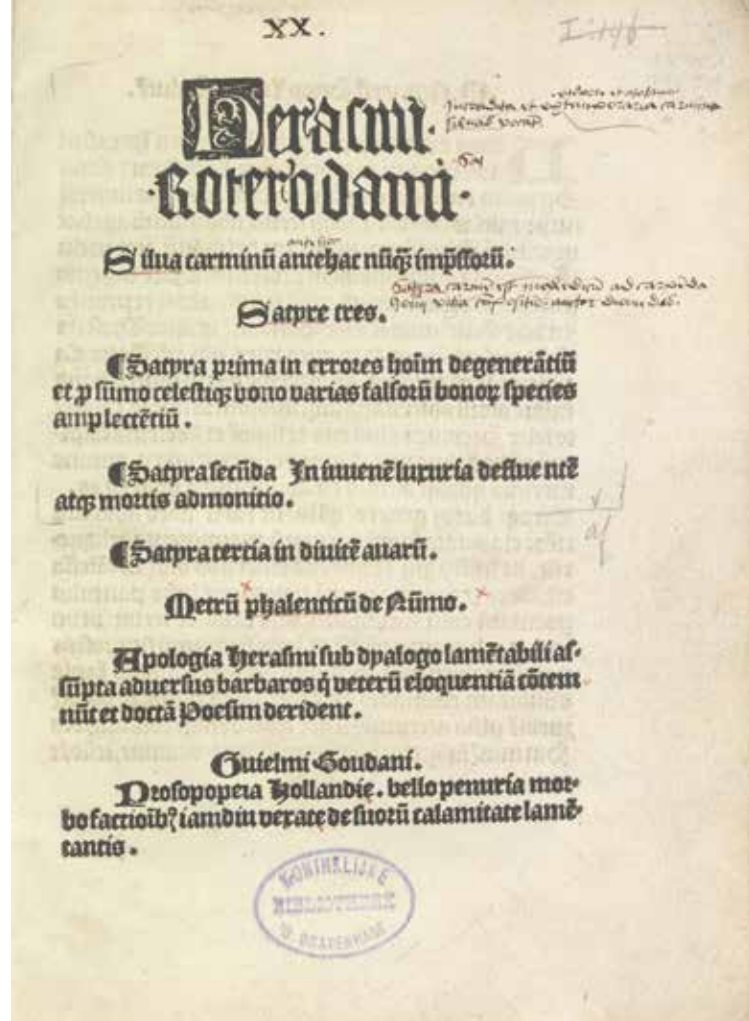 XX.
I:146
Herasmi
Roterodami.
Silua carminū antehac nūq̄ꝫ imp̄ssorū.
Satyre tres.
¶Satyra prima in errores hoīm degenerātiū
et ꝓ sūmo celestiqꝫ bono varias falsorū bonoꝝ species
amplectētiū.
¶Satyra secūda In iuuenē luxuria defluentē
atqꝫ mortis admonitio.
¶Satyra tercia in diuitē auarū.
Metrū phalenticū de Nūmo.
Apologia Herasmi sub dyalogo lamētabili as-
sūpta aduersus barbaros q̇ veterū eloquentiā cōtem
nūt et doctā Poesim derident.
Guielmi Goudani.
Prosopopeia Hollandię. bello penuria mor-
bo factioībꝰ iamdiu vexatę de suorū calamitate lamē-
tantis.
KONINKLIJKE
BIBLIOTHEEK
'S GRAVENHAGE